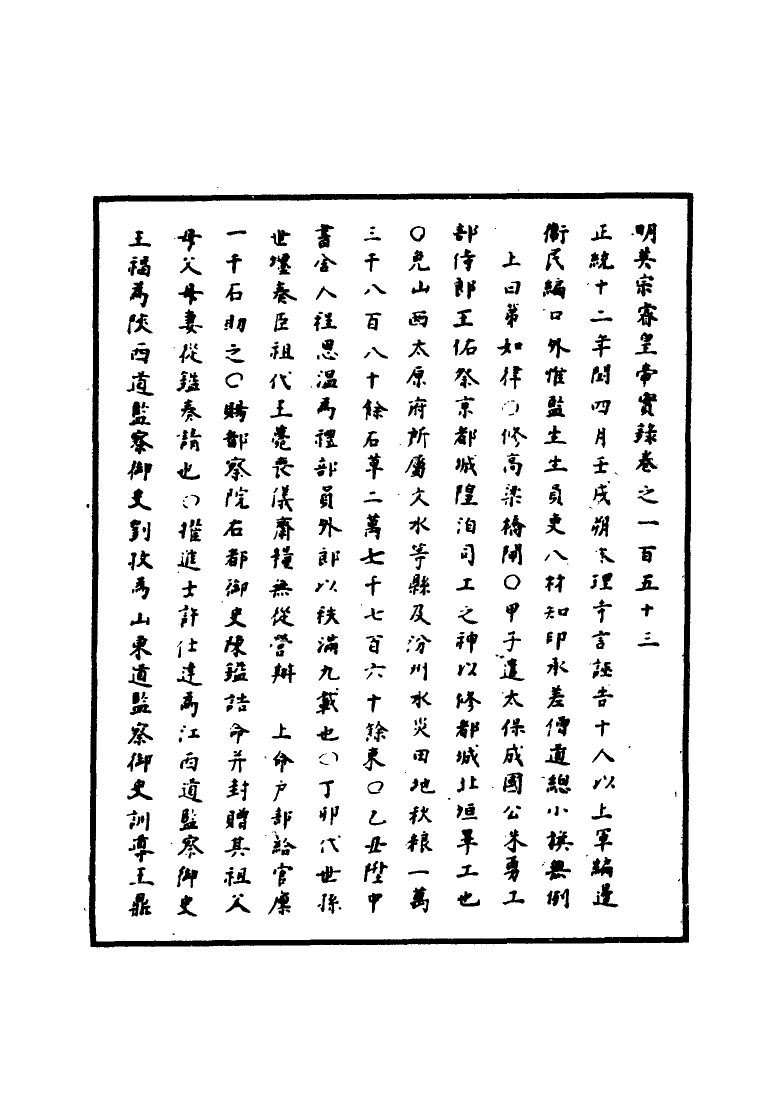 明英宗睿皇帝實錄卷之一百五十三
正統十二年閏四月壬戌朔大理寺言誣告十人以上軍編邊
衞民編口外惟監生生員吏八材知印承差僧道總小旗無例
上曰第如律○修高梁橋閘○甲子遣太保成國公朱勇工
部侍郎王佑祭京都城隍洎司工之神以修都城北垣畢工也
○免山西太原府所屬文水等縣及汾州水災田地秋粮一萬
三千八百八十餘石草二萬七千七百六十餘束○乙丑陞中
書舍人程思溫為禮部員外郎以秩滿九載也○丁卯代世孫
世㙺奏臣祖代王薨喪儀齋糧無從營辦 上命戶部給官廩
一千石助之○賜都察院右都御史陳鎰誥命并封贈其祖父
母父母妻從鎰奏請也○擢進士許仕達為江西道監察御史
王福為陝西道監察御史劉孜為山東道監察御史訓導王鼎